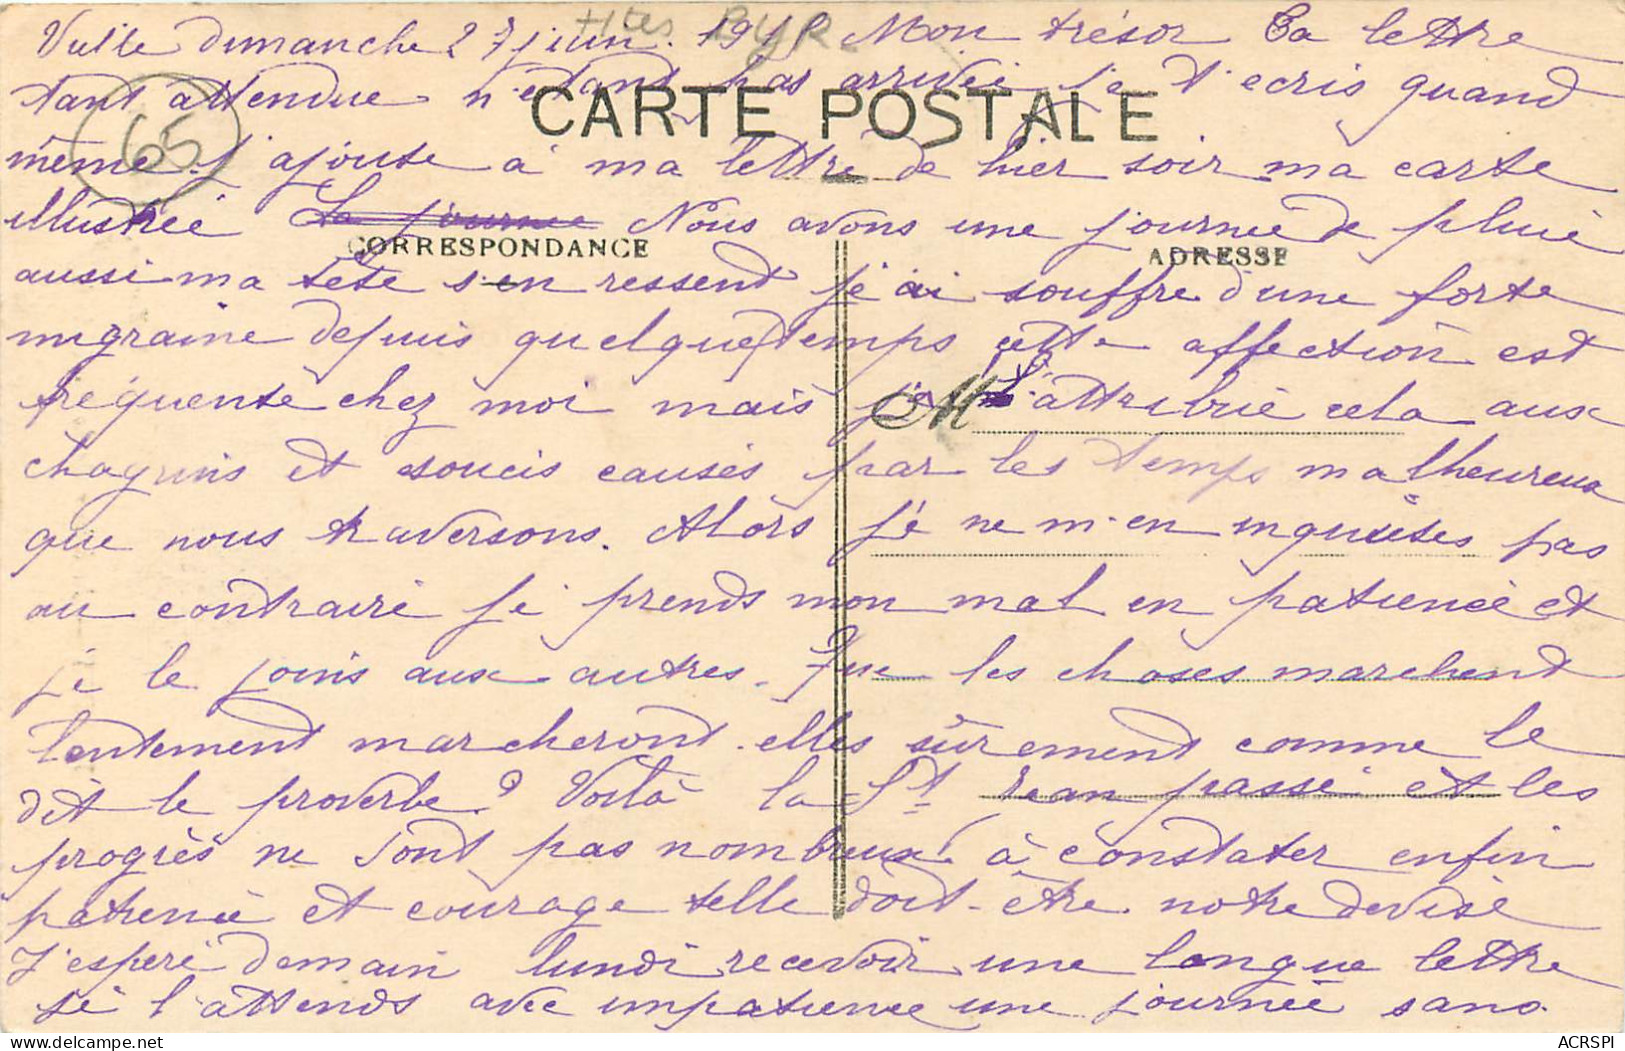 Vielle dimanche 27 juin 1915 Mon trésor Ta lettre
tant attendue n'étant pas arrivée je t'ecris quand
65
CARTE POSTALE
même. J'ajoute à ma lettre de hier soir ma carte
illustrée La journee Nous avons une journée de pluie
CORRESPONDANCE
ADRESSE
aussi ma tête s'en ressent j'ai souffre d'une forte
migraine depuis quelque temps cette affection est
frequente chez moi mais je l'attribue cela aux
M
chagrins et soucis causés par les temps malheureux
que nous traversons. Alors je ne m'en inquietes pas
au contraire je prends mon mal en patience et
je le joins aux autres. Que les choses marchent
lentement marcheront elles sûrement comme le
dit le proverbe? Voilà la St Jean passé et les
progrès ne sont pas nombreux à constater enfin
patience et courage telle doit être notre devise
J'espere demain lundi recevoir une longue lettre
je l'attends avec impatience une journée sans
ACRSPI